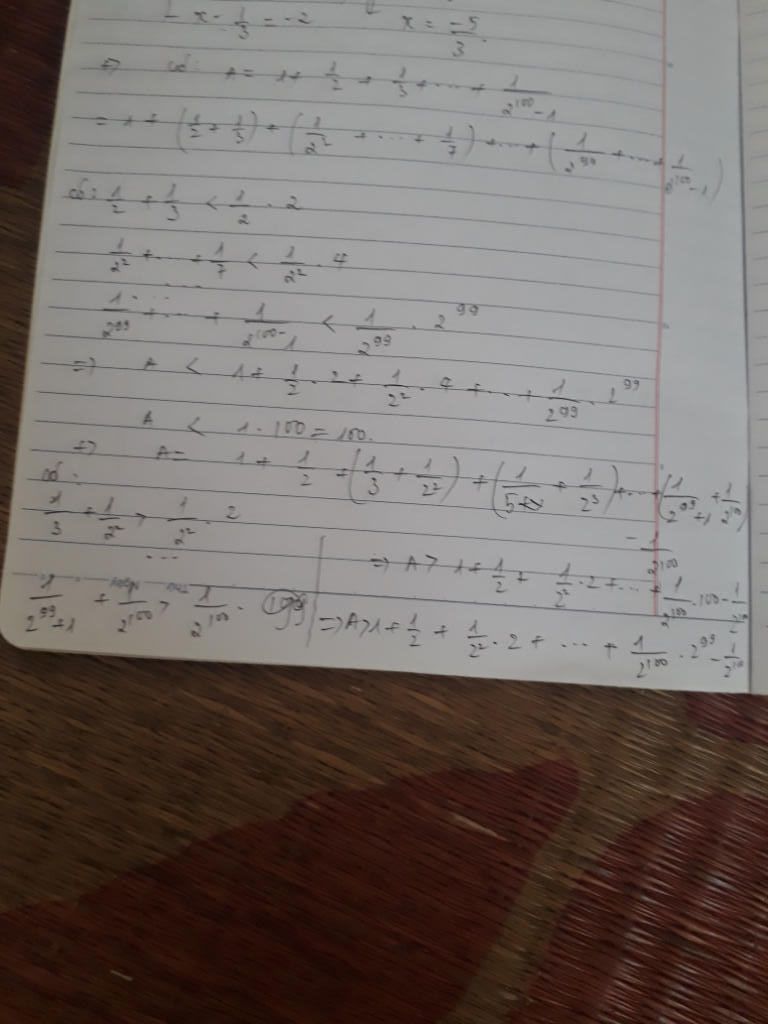 x - 1/3 = -2    x = -5/3.
=> có: A = 1 + 1/2 + 1/3 + ... + 1/(2^100 - 1)
= 1 + (1/2 + 1/3) + (1/2^2 + ... + 1/7) + ... + (1/2^99 + ... + 1/(2^100 - 1))
có: 1/2 + 1/3 < 1/2 . 2
1/2^2 + ... + 1/7 < 1/2^2 . 4
...
1/2^99 + ... + 1/(2^100 - 1) < 1/2^99 . 2^99
=> A < 1 + 1/2 . 2 + 1/2^2 . 4 + ... + 1/2^99 . 2^99
A < 1 . 100 = 100.
=> A = 1 + 1/2 + (1/3 + 1/2^2) + (1/5 + 1/2^3) + ... + (1/(2^99 + 1) + 1/2^100) - 1/2^100
có:
1/3 + 1/2^2 > 1/2^2 . 2
...
1/(2^99 + 1) + 1/2^100 > 1/2^100 .
=> A > 1 + 1/2 + 1/2^2 . 2 + ... + 1/2^100 . 100 - 1/2^100
=> A > 1 + 1/2 + 1/2^2 . 2 + ... + 1/2^100 . 2^99 - 1/2^100